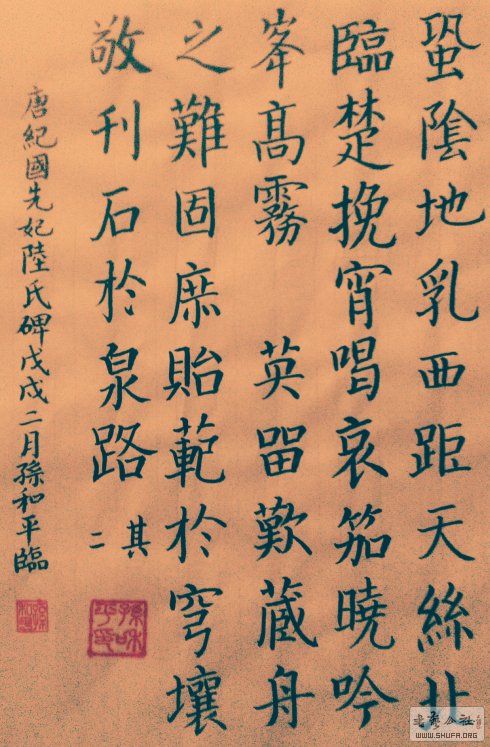 蛩陰地乳西距天絲北
臨楚挽宵唱哀笳曉吟
峯高霧 英畱歎蔵舟
之難固庶貽範於穹壤
敬刊石於泉路
其二
唐紀國先妃陸氏碑戊戌二月孫和平臨
孫和平印
WWW.SHUFA.ORG